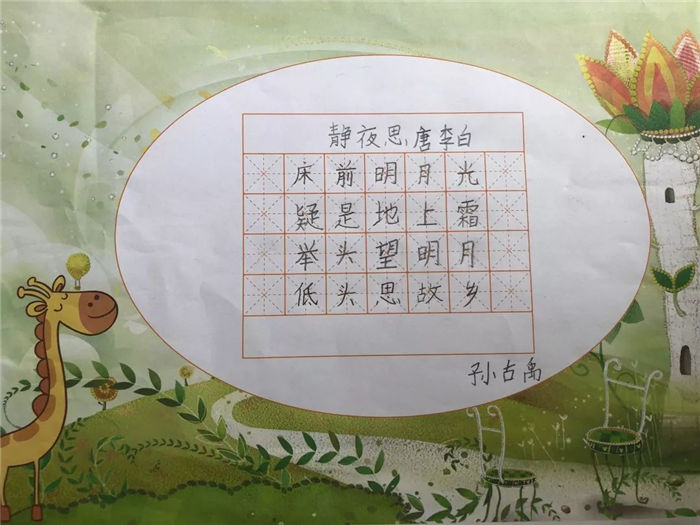 静夜思唐李白
床前明月光
疑是地上霜
举头望明月
低头思故乡
孙古禹